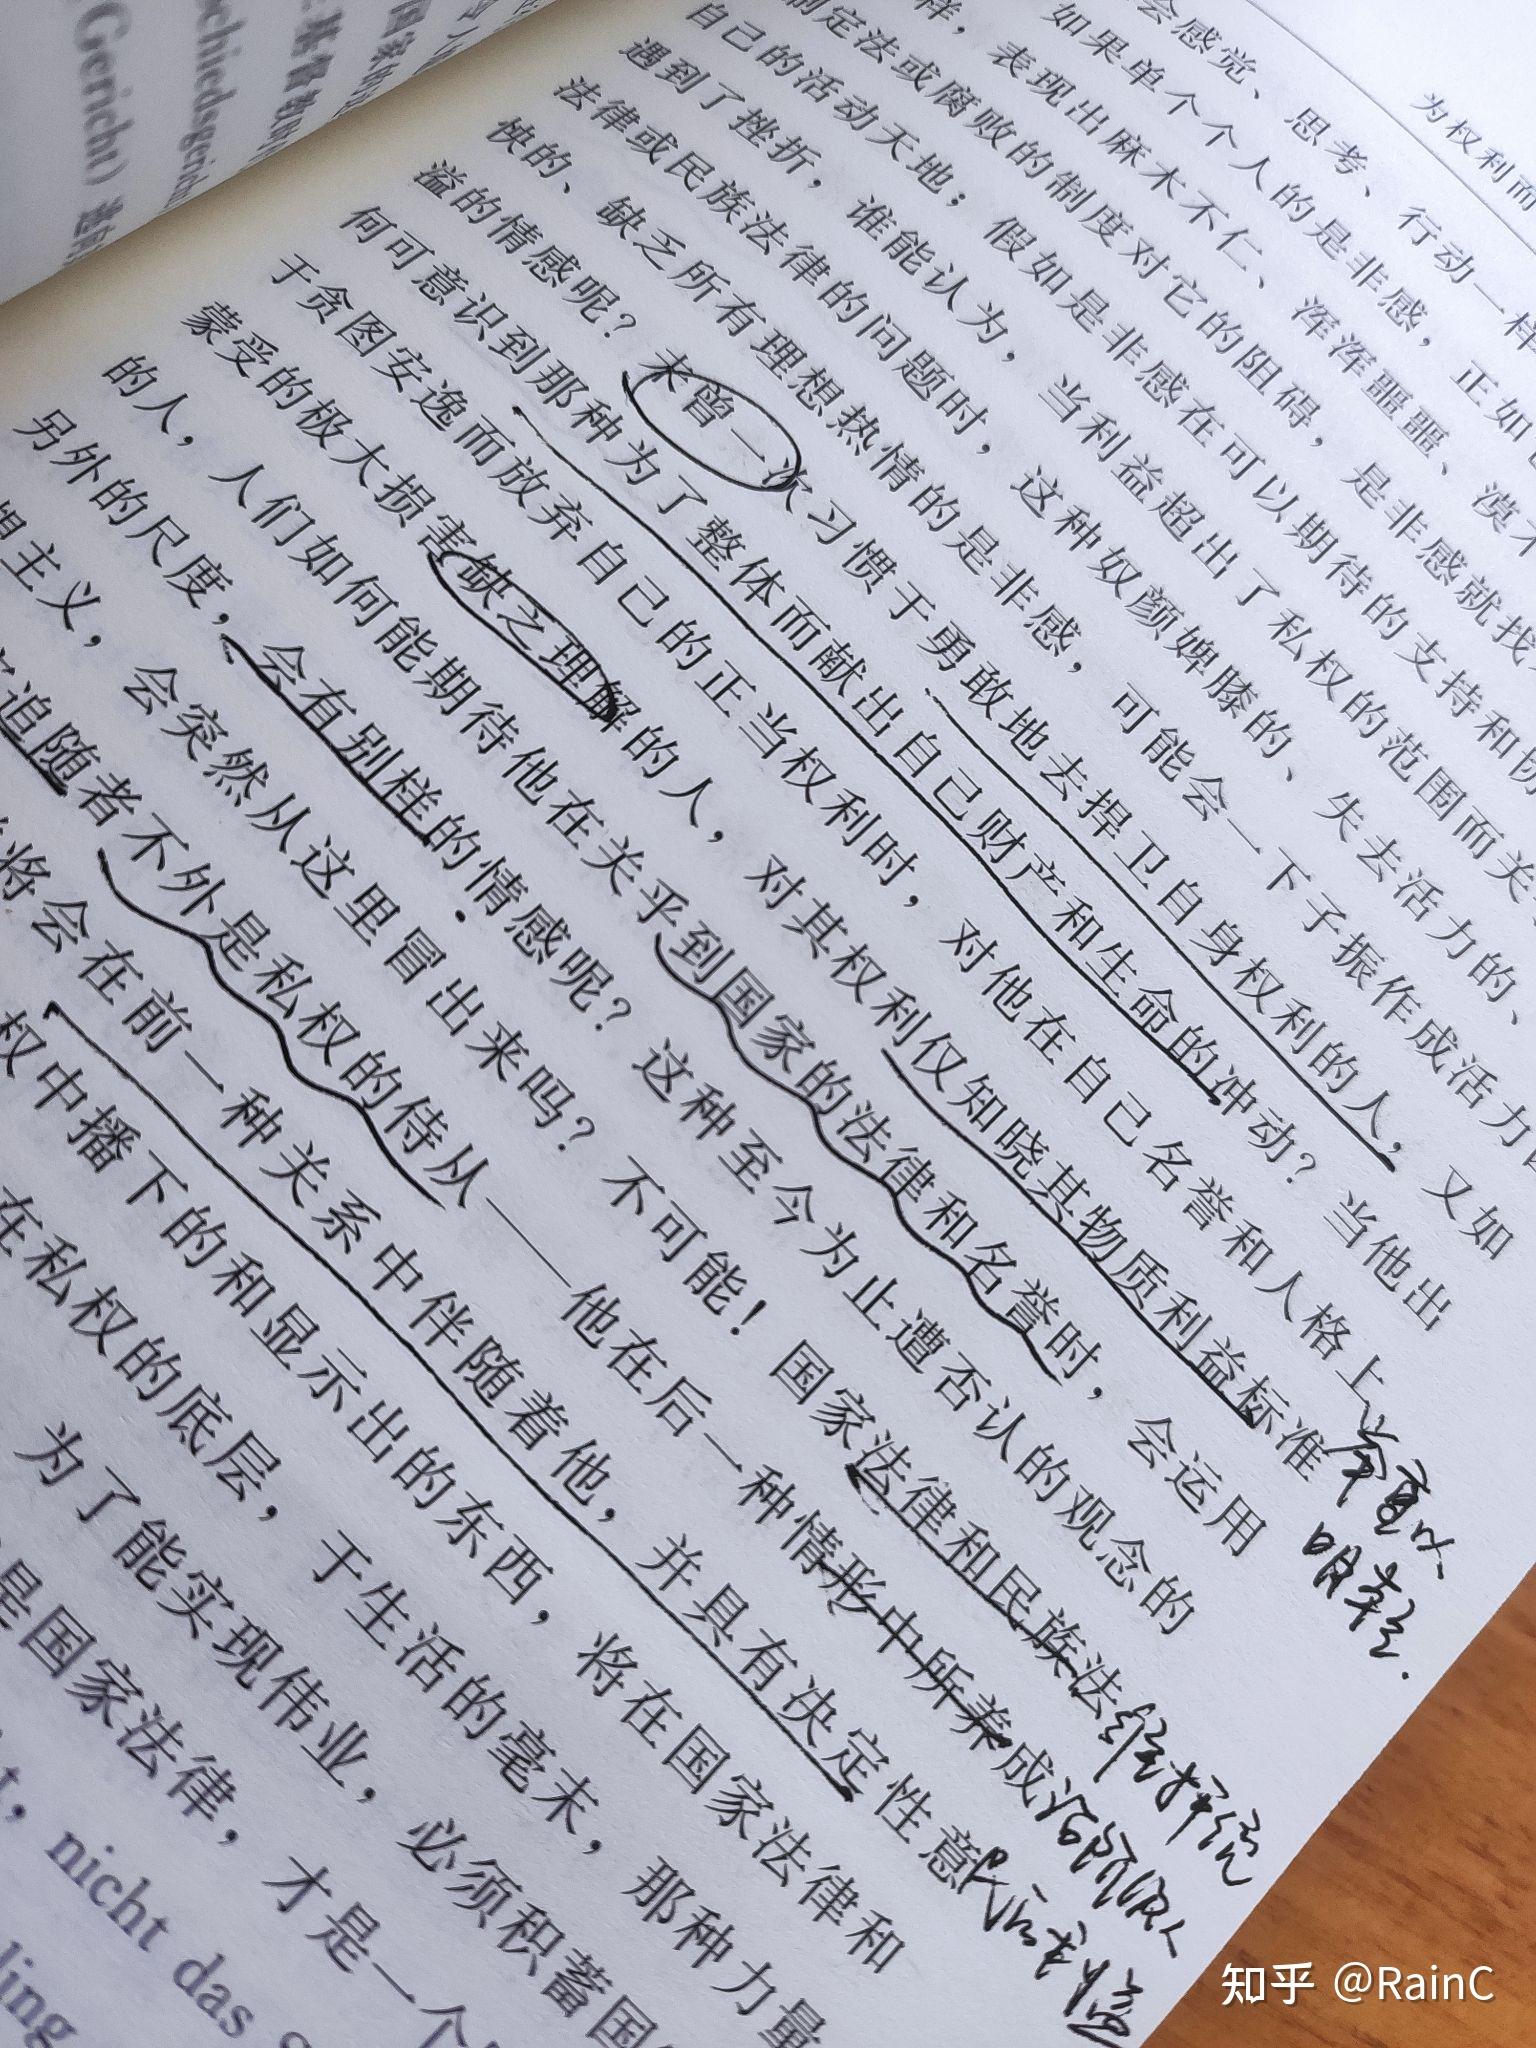 为权利而
会感觉、思考、行动一样
如果单个个人的是非感，正如
样，表现出麻木不仁、浑浑噩噩、漠不
制定法或腐败的制度对它的阻碍，是非感就找
自己的活动天地；假如是非感在可以期待的支持和
遇到了挫折，谁能认为，当利益超出了私权的范围而关
法律或民族法律的问题时，这种奴颜婢膝的、失去活力的、
怏的、缺乏所有理想热情的是非感，可能会一下子振作成活力
溢的情感呢？未曾一次习惯于勇敢地去捍卫自身权利的人，又如
何可意识到那种为了整体而献出自己财产和生命的冲动？当他出
于贪图安逸而放弃自己的正当权利时，对他在自己名誉和人格上
蒙受的极大损害缺乏理解的人，对其权利仅知晓其物质利益标准
的人，人们如何能期待他在关乎到国家的法律和名誉时，会运用
另外的尺度，会有别样的情感呢？这种至今为止遭否认的观念的
主义，会突然从这里冒出来吗？不可能！国家法律和民族法
追随者不外是私权的侍从——他在后一种情形中所养成
将会在前一种关系中伴随着他，并具有决定性意
权中播下的和显示出的东西，将在国家法律和
在私权的底层，于生活的毫末，那种力量
为了能实现伟业，必须积蓄国
是国家法律，才是一个
nicht das
ling
国家的
基督教
schiedsgericht
Gericht）
知乎 @RainC